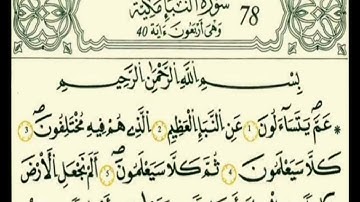 سورة النبإ مكية
78
وهى أربعون ءاية 40
بِسْمِ اللَّهِ الرَّحْمَٰنِ الرَّحِيمِ
* عَمَّ يَتَسَآءَلُونَ 1 عَنِ النَّبَإِ الْعَظِيمِ 2 الَّذِى هُمْ فِيهِ مُخْتَلِفُونَ 3
كَلَّا سَيَعْلَمُونَ 4 ثُمَّ كَلَّا سَيَعْلَمُونَ 5 أَلَمْ نَجْعَلِ الْأَرْضَ